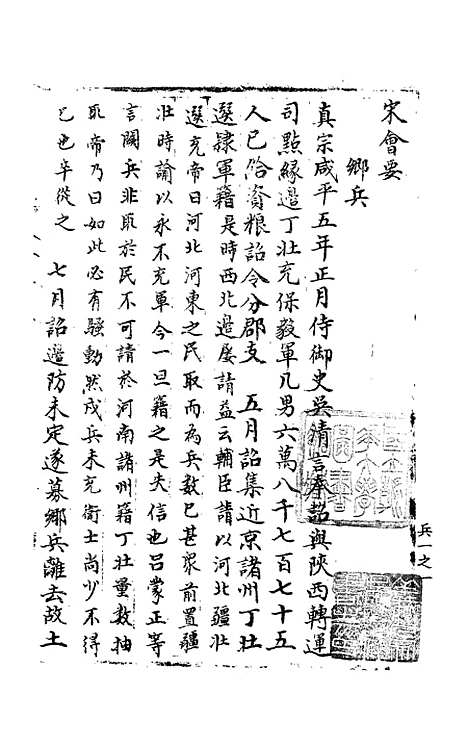 宋會要
鄉兵
真宗咸平五年正月侍御史吳蒨言奉詔與陝西轉運
司點緣邊丁壯充保毅軍凡男六萬八千七百七十五
人已給資糧詔令分郡支　五月詔集近京諸州丁壯
選隸軍籍是時西北邊屡請益云輔臣請以河北疆壯
選充帝曰河北河東之民取而為兵数已甚衆前置疆
壯時諭以永不充軍今一旦籍之是失信也呂蒙正等
言闕兵非取於民不可請於河南諸州籍丁壯量数抽
取帝乃曰如此必有騷動然戍兵未充衛士尚少不得
已也卒從之　七月詔邊防未定遂募鄉兵離去故土
兵一之一